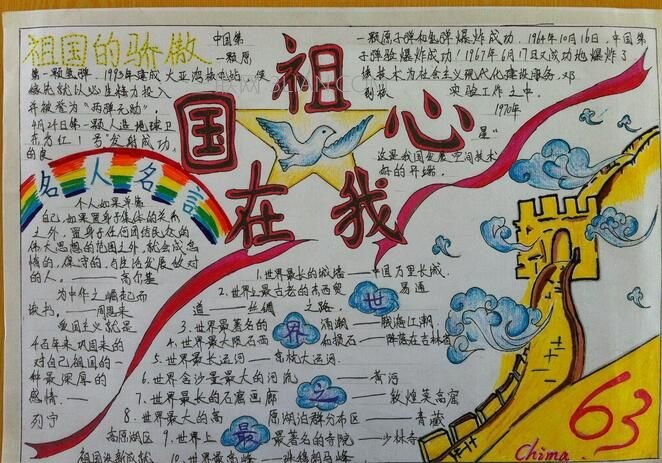 祖国的骄傲
中国第
一颗原
第一颗氢弹，1993年建成大亚湾核电站，使
稼先就以必生精力投入
并被誉为“两弹元勋”，
4月24日第一颗人造地球卫
东方红1号”发射成功，
的良
一颗原子弹和氢弹爆炸成功．1964年10月16日，中国第
子弹验爆炸成功！1967年6月17日又成功地爆炸了
核技术为社会主义现代化建设服务，邓
实验工作之中．
1970年
星“
这是我国发展空间技术
好的开端．
祖国在我心
名人名言
个人如果单靠
自己，如果置身于集体的关系
之外，置身于任何团结民众的
伟大思想的范围之外，就会成怠
惰的，保守的，与生活发展敌对
的人．——高尔基
为中华之崛起而
读书．——周恩来
爱国主义就是
千百年来巩固来的
对自己祖国的一
种最深厚的
感情．——
列宁
祖国没新成就
世界之最
1．世界最长的城墙——中国万里长城．
2．世界上最古老的东西贸易通
道——丝绸之路．
3．世界最著名的涌潮——钱塘江潮．
4．世界最大陨石西和陨石——降落在吉林省
5．世界最长运河——京杭大运河．
6．世界含沙量最大的河流——黄河
7．世界最长的石窟画廊——敦煌莫高窟
8．世界最大的高原湖泊群分布区——青藏
高原湖区
9．世界上最著名的寺院——少林寺
10．世界最高峰——珠穆朗玛峰
63
Chima.